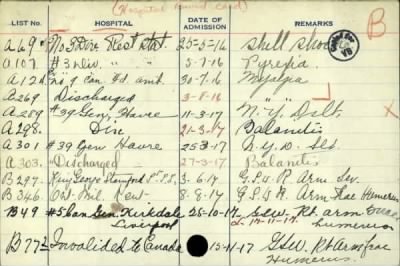 (Hospital record card)
B
LIST No. HOSPITAL DATE OF ADMISSION REMARKS
A69 No 3 Div. Rest Stat. 25-5-16 Shell Shock
A107. #3 Div. " " 5-7-16 Pyrexia
A120 No 9 Can Fd. amb. 30-7-16 Myalgia
A269 Discharged 3-8-16
A259 #39 Gen, Havre 11-3-17 N.Y.D. Slt.
A298. Div 21-3-17 Balanitis
A301 #39 Gen Havre 25 3-17 N.Y.D. Slt.
A303. Discharged 27-3-17 Balanitis
B297 King George Stamford St. 3-6-17 G.S.W. R Arm Sev.
B346 Ont. Mil. Kent 8-8-17 G.S.W R Arm Frac Humerus
B49 #5 Can Gen. Kirkdale 25-10-17 G.S.W. Rt. arm
Liverpool 17-11-17. humerus
B772 Invalided to Canada 13-11-17 GSW Rt Arm frac
Humerus.